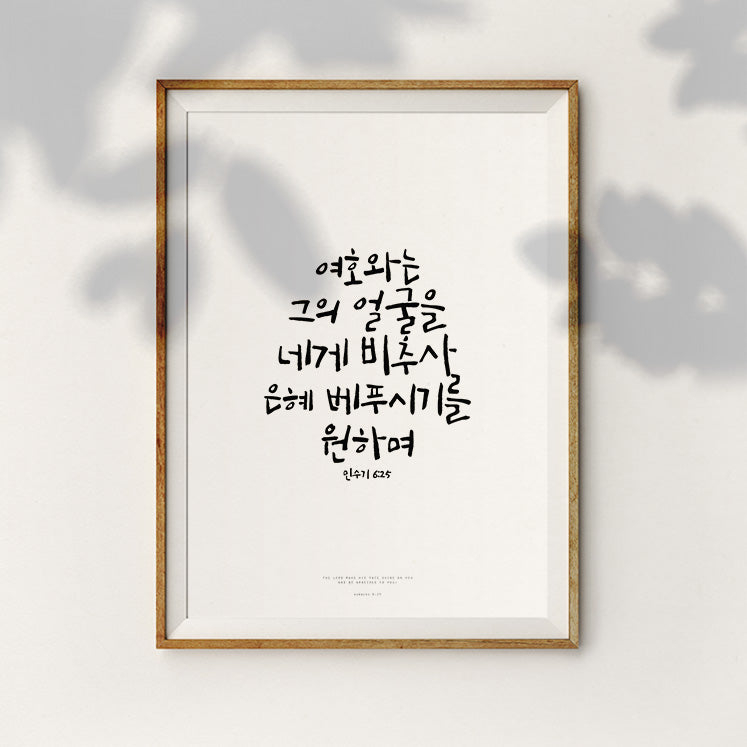 여호와는
그의 얼굴을
네게 비추사
은혜 베푸시기를
원하며
민수기 6:25
THE LORD MAKE HIS FACE SHINE ON YOU
AND BE GRACIOUS TO YOU;